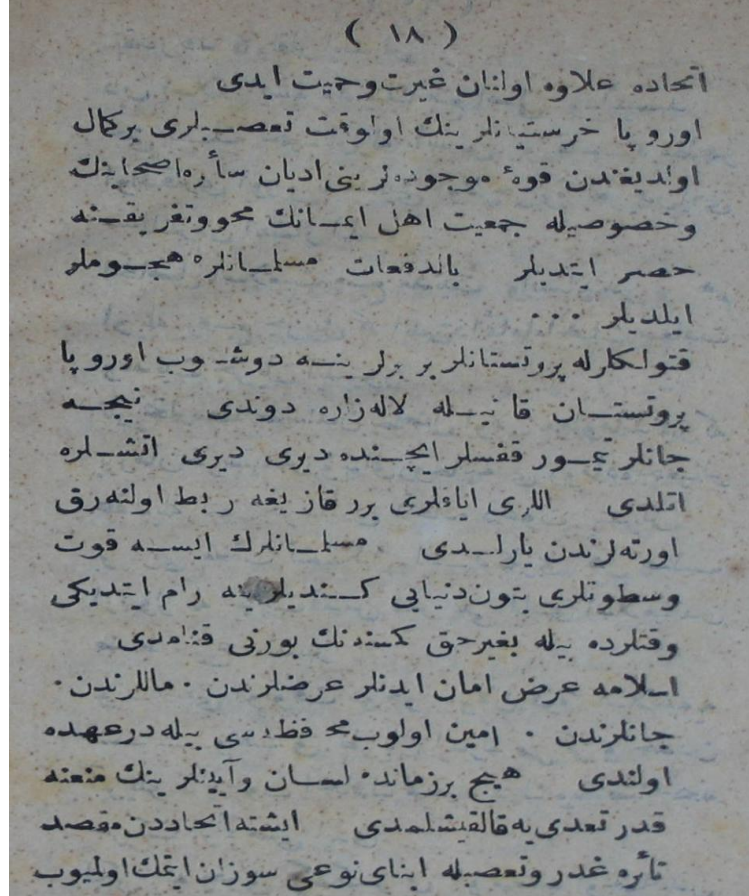 ( ١٨ )
اتحاده علاوه اولنان غيرت وحميت ايدى
اوروپا خرستيانلرينك اولوقت تعصبلرى بركمال
اولديغندن قوهٔ موجوده‌لرينى اديان سأره اصحابنك
وخصوصيله جمعيت اهل ايمانك محووتفريقنه
حصر ايتديلر بالدفعات مسلمانلره هجوملر
ايلديلر ...
قتولكلرله پروتستانلر بر برلرينه دوشوب اوروپا
پروتستان قانيله لاله‌زاره دوندى نيجه
جانلر تيمور قفسلر ايچنده ديرى ديرى اتشلره
اتلدى اللرى اياقلرى برر قازيغه ربط اولنه‌رق
اورته‌لرندن يارلدى مسلمانلرك ايسه قوت
وسطوتلرى بتون دنيايى كنديلرينه رام ايتديكى
وقتلرده بيله بغيرحق كمسنه‌نك بورنى قنامدى
اسلامه عرض امان ايدنلر عرضلرندن . ماللرندن .
جانلرندن . امين اولوب محافظه‌سى بيله درعهده
اولندى هيچ برزمانده لسان وآيينلرينك منعنه
قدر تعدى‌يه قالقيشلمدى ايشته اتحاددن مقصد
تأره غدر وتعصبله ابناى نوعى سوزان ايتمك اولميوب